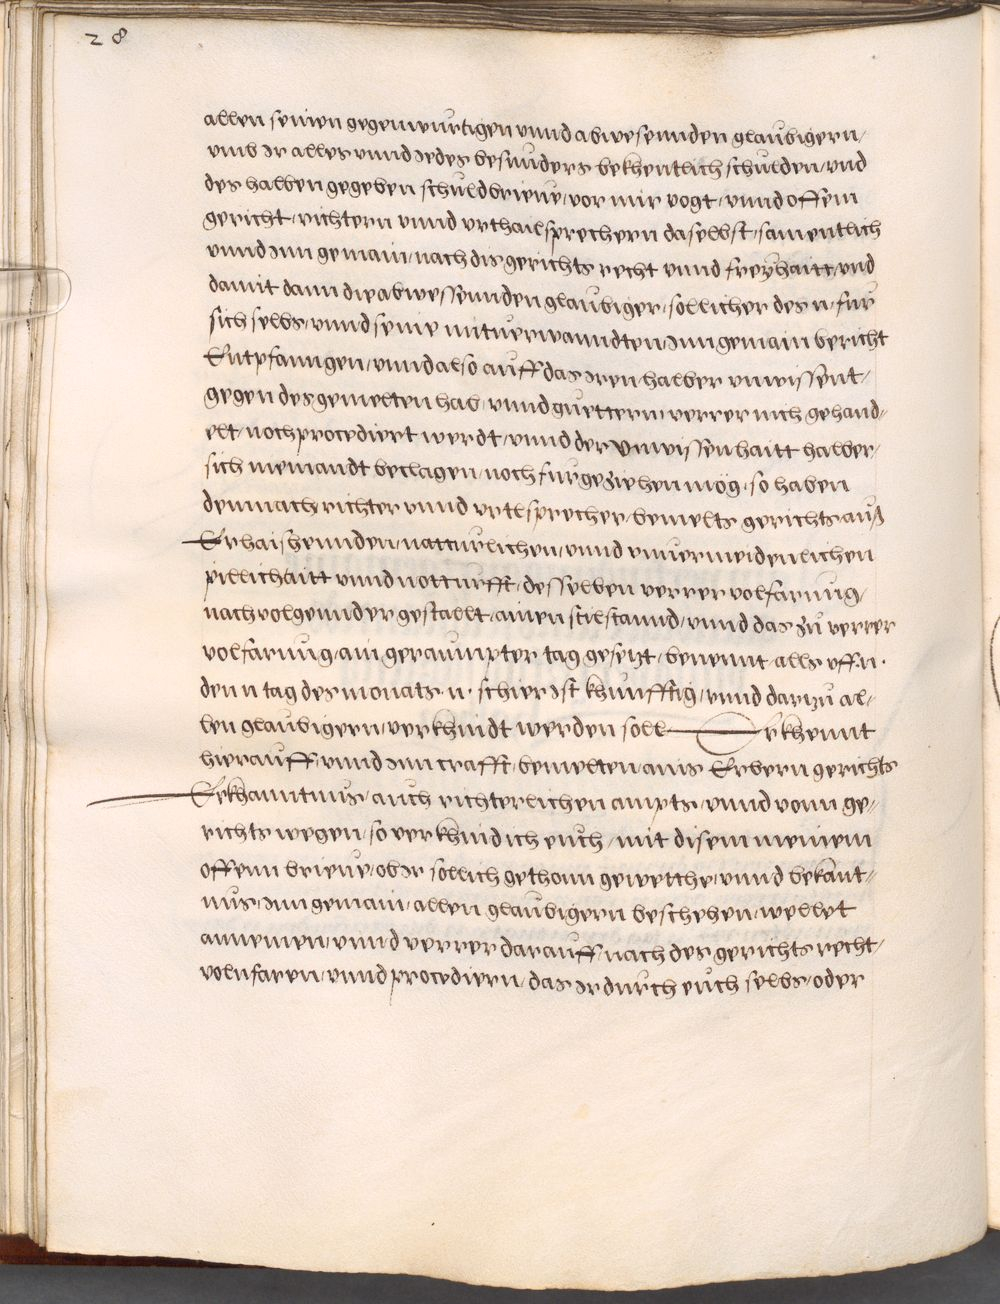 28
allen seinen gegenwurtigen vnnd abwesennden glaubigern /
vmb Ir alles vnnd Iedes besonnders bekhentlich schulden / vnd
des halben gegeben schuldbrieue / vor mir vogt / vnnd offem
gericht / richtern vnnd vrthailsprechern daselbst / samentlich
vnnd Inn gemain / nach dis gerichts recht vnnd freyhaitt / vnd
damit dann die abwessennden glaubiger / sollicher des n. fur
sich selbs / vnnd seine mituerwanndten / Inn gemain bericht
Entpfanngen / vnnd also auff das Iren halber vnwissent /
gegen des gemelten hab / vnnd guettern / verrer nich gehand„
elt / noch procediert werdt / vnnd der vnwissenhaitt halber /
sich niemandt beclagen / noch furgeziehen mög . so haben
demnach richter vnnd vrtlsprecher / bemelts gerichts / auß
Erhaishennden / natturlichen / vnnd vnuermeidenlichen
pillichaitt vnnd notturfft / desselben verrer volfarung /
nachvolgennder gestallt / ainen stilstannd / vnnd das zu verrer
volfarung / ain geraumpter tag gesetzt / benennt / alls vff n .
den n tag des monats n . schier Ist khunfftig / vnnd darzu al„
len glaubigern / verkhindt werden soll Erkhennt
hierauff / vnnd Inn crafft / bemelten ains Erbern gerichts
Erkhanntnus / auch richterlichen ampts / vnnd vonn ge„
richts wegen / so verkhind ich euch / mit disem meinem
offenn brieue / ob Ir sollich gethonn gewette / vnnd bekant„
nus / Inn gemain / allen glaubigern beschehen / wellet
annemen / vnnd verrer darauff / nach des gerichts recht /
volnfaren / vnnd procediern / das Ir durch euch selbs / oder